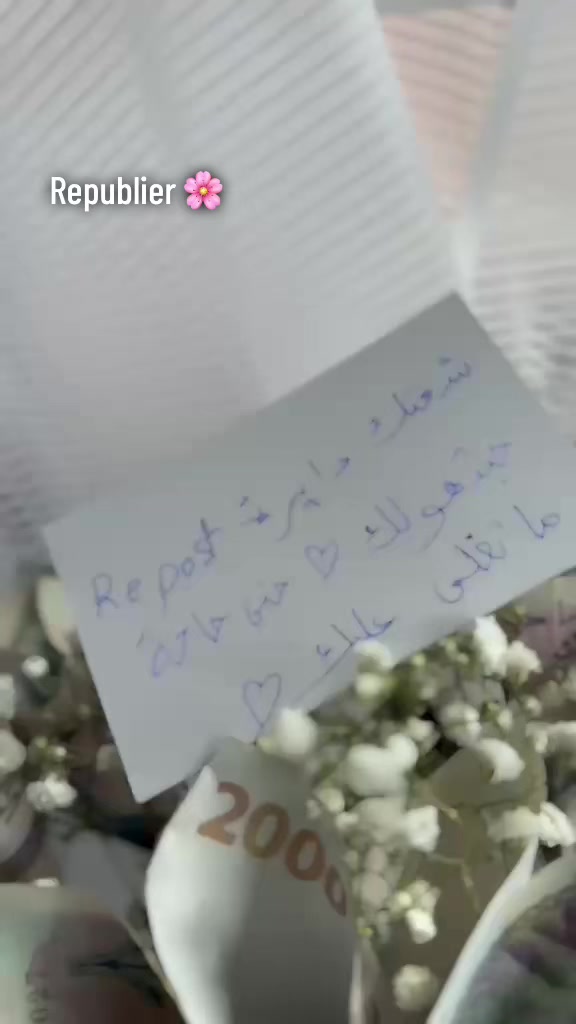 Republier 🌸
شفتك دايرة Repost
جبتهولك ♡ حتى حاجة
ما تغلى عليك ♡
2000